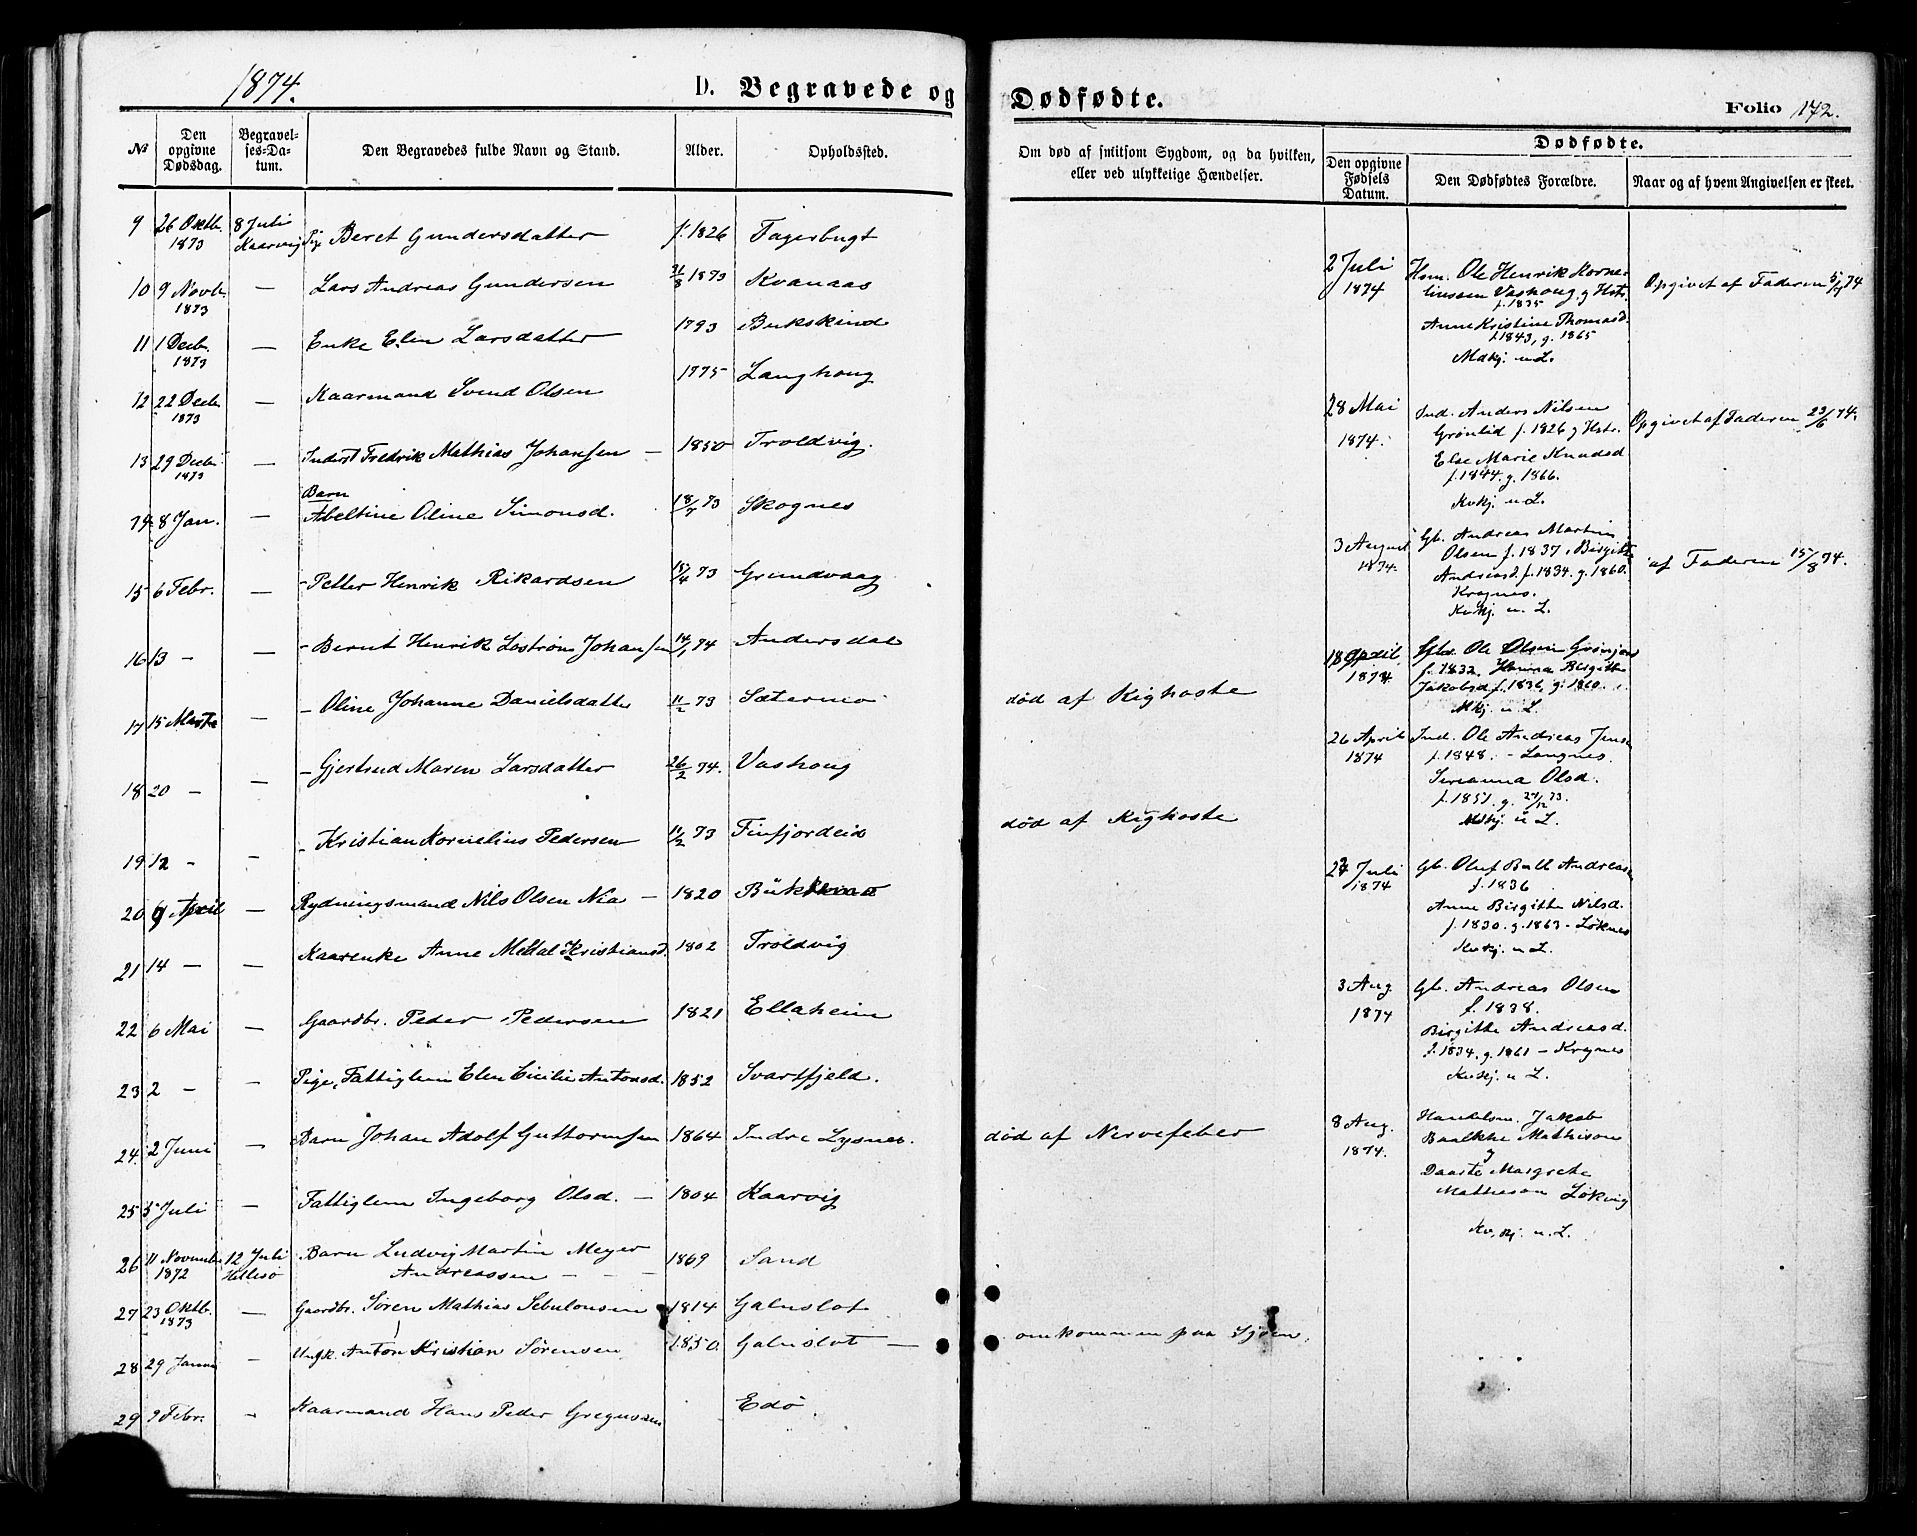 1874.
D. Begravede og Dødfødte.
Folio 172.
№
Den opgivne Dødsdag.
Begravelses-Datum.
Den Begravedes fulde Navn og Stand.
Alder.
Opholdssted.
Om død af smitsom Sygdom, og da hvilken, eller ved ulykkelige Hændelser.
Dødfødte.
Den opgivne Fødsels Datum.
Den Dødfødtes Forældre.
Naar og af hvem Angivelsen er skeet.
9 26 Oktb. 1873 8 Juli Kaarvig Pige Beret Gundersdatter f. 1826 Fagerbugt
10 9 Novb. 1873 — Lars Andreas Gundersen 31/8 1873 Kvanaas
11 1 Decb. 1873 — Enke Elen Larsdatter 1793 Bukskind
12 22 Decb. 1873 — Kaarmand Svend Olsen 1775 Langhoug
13 29 Decb. 1873 — Inderst Fredrik Mathias Johansen — 1850 Troldvig.
14 8 Jan. — Barn Abeltine Oline Simonsd. 18/7 73 Skognes
15 6 Febr. — - Petter Henrik Rikardsen 15/4 73 Grundvaag
16 13 - — - Bernt Henrik Johansen 14/1 74 Andersdal
17 15 Marts — - Oline Johanne Danielsdatter 11/2 73 Sætermo død af Kighoste
18 20 - — - Gjertrud Maren Larsdatter 26/2 74. Vashoug
19 12 - — - Kristian Kornelius Pedersen 11/2 73 Finfjordeid død af Kighoste
20 9 April — Rydningsmand Nils Olsen Nia — 1820
21 14 — — Kaarenke Anne Kristiansd. 1802 Troldvig
22 6 Mai — Gaardbr. Peder Pedersen 1821 Ellaheim
23 2 - — Pige, Fattiglem Elen Cicilie Antonsd. 1852 Svartfjeld.
24. 2 Juni — Barn Johan Adolf Guttormsen 1864 Indre Lysnes. død af Nervefeber
25 5 Juli — Fattiglem Ingeborg Olsd. — 1804 Kaarvig
26 11 Novembr 1872 12 Juli Hillesø Barn Ludvig Martin Meyer Andreassen - - - 1869 Sand
27 23 Oktb. 1873 — Gaardbr. Søren Mathias Sebulonsen 1814 Galnslot
28 29 Januar - Ungk. Anton Kristian Sørensen f. 1850. Galnslot — omkommen paa Sjøen.
29 9 Febr. - Kaarmand Hans Peder Gregussen Edø.
2 Juli 1874
Hsm. Ole Henrik Korneliussen Vashoug. g Hstr.
f. 1835
Anne Kristine Thomasd.
f. 1843, g. 1865
Mdkj. u L.
Opgivet af Faderen 5/7 74
28 Mai 1874.
Ind. Anders Nilsen
Grønlid f. 1826 g Hstr.
Else Marie Knudsd
f. 1844. g. 1866.
Kvkj. u L.
Opgivet af Faderen 23/6 74.
3 August 1874.
Gb. Andreas Martin
Olsen f. 1837, Birgitte
Andreasd. f. 1834. g. 1860.
Kragnes.
Kvkj. u. L.
af Faderen 15/8 74.
18 April 1874
Ole Olsen
f. 1832, Birgitte
Jakobsd. f. 1836, g. 1860.
Mkj. u L.
26 April 1874
Ind. Ole Andreas Jensen
f. 1848. - Langnes.
Olsd.
f. 1851. g. 73.
Mdkj. u L.
Juli 1874
Gb. Oluf Andreasen
f. 1836
Anne Birgitte Nilsd.
f. 1830. g. 1863 - Løknes
Kvkj. u L.
3 Aug 1874
Gb. Andreas Olsen
f. 1838.
Birgitte Andreasd.
f. 1834. g. 1861 - Kragnes
Kvkj. u L.
8 Aug. 1874.
Handelsm. Jakob
Mathison
g
Daarte Margrete
Mathison Løkvig
Kv, kj. u. L.